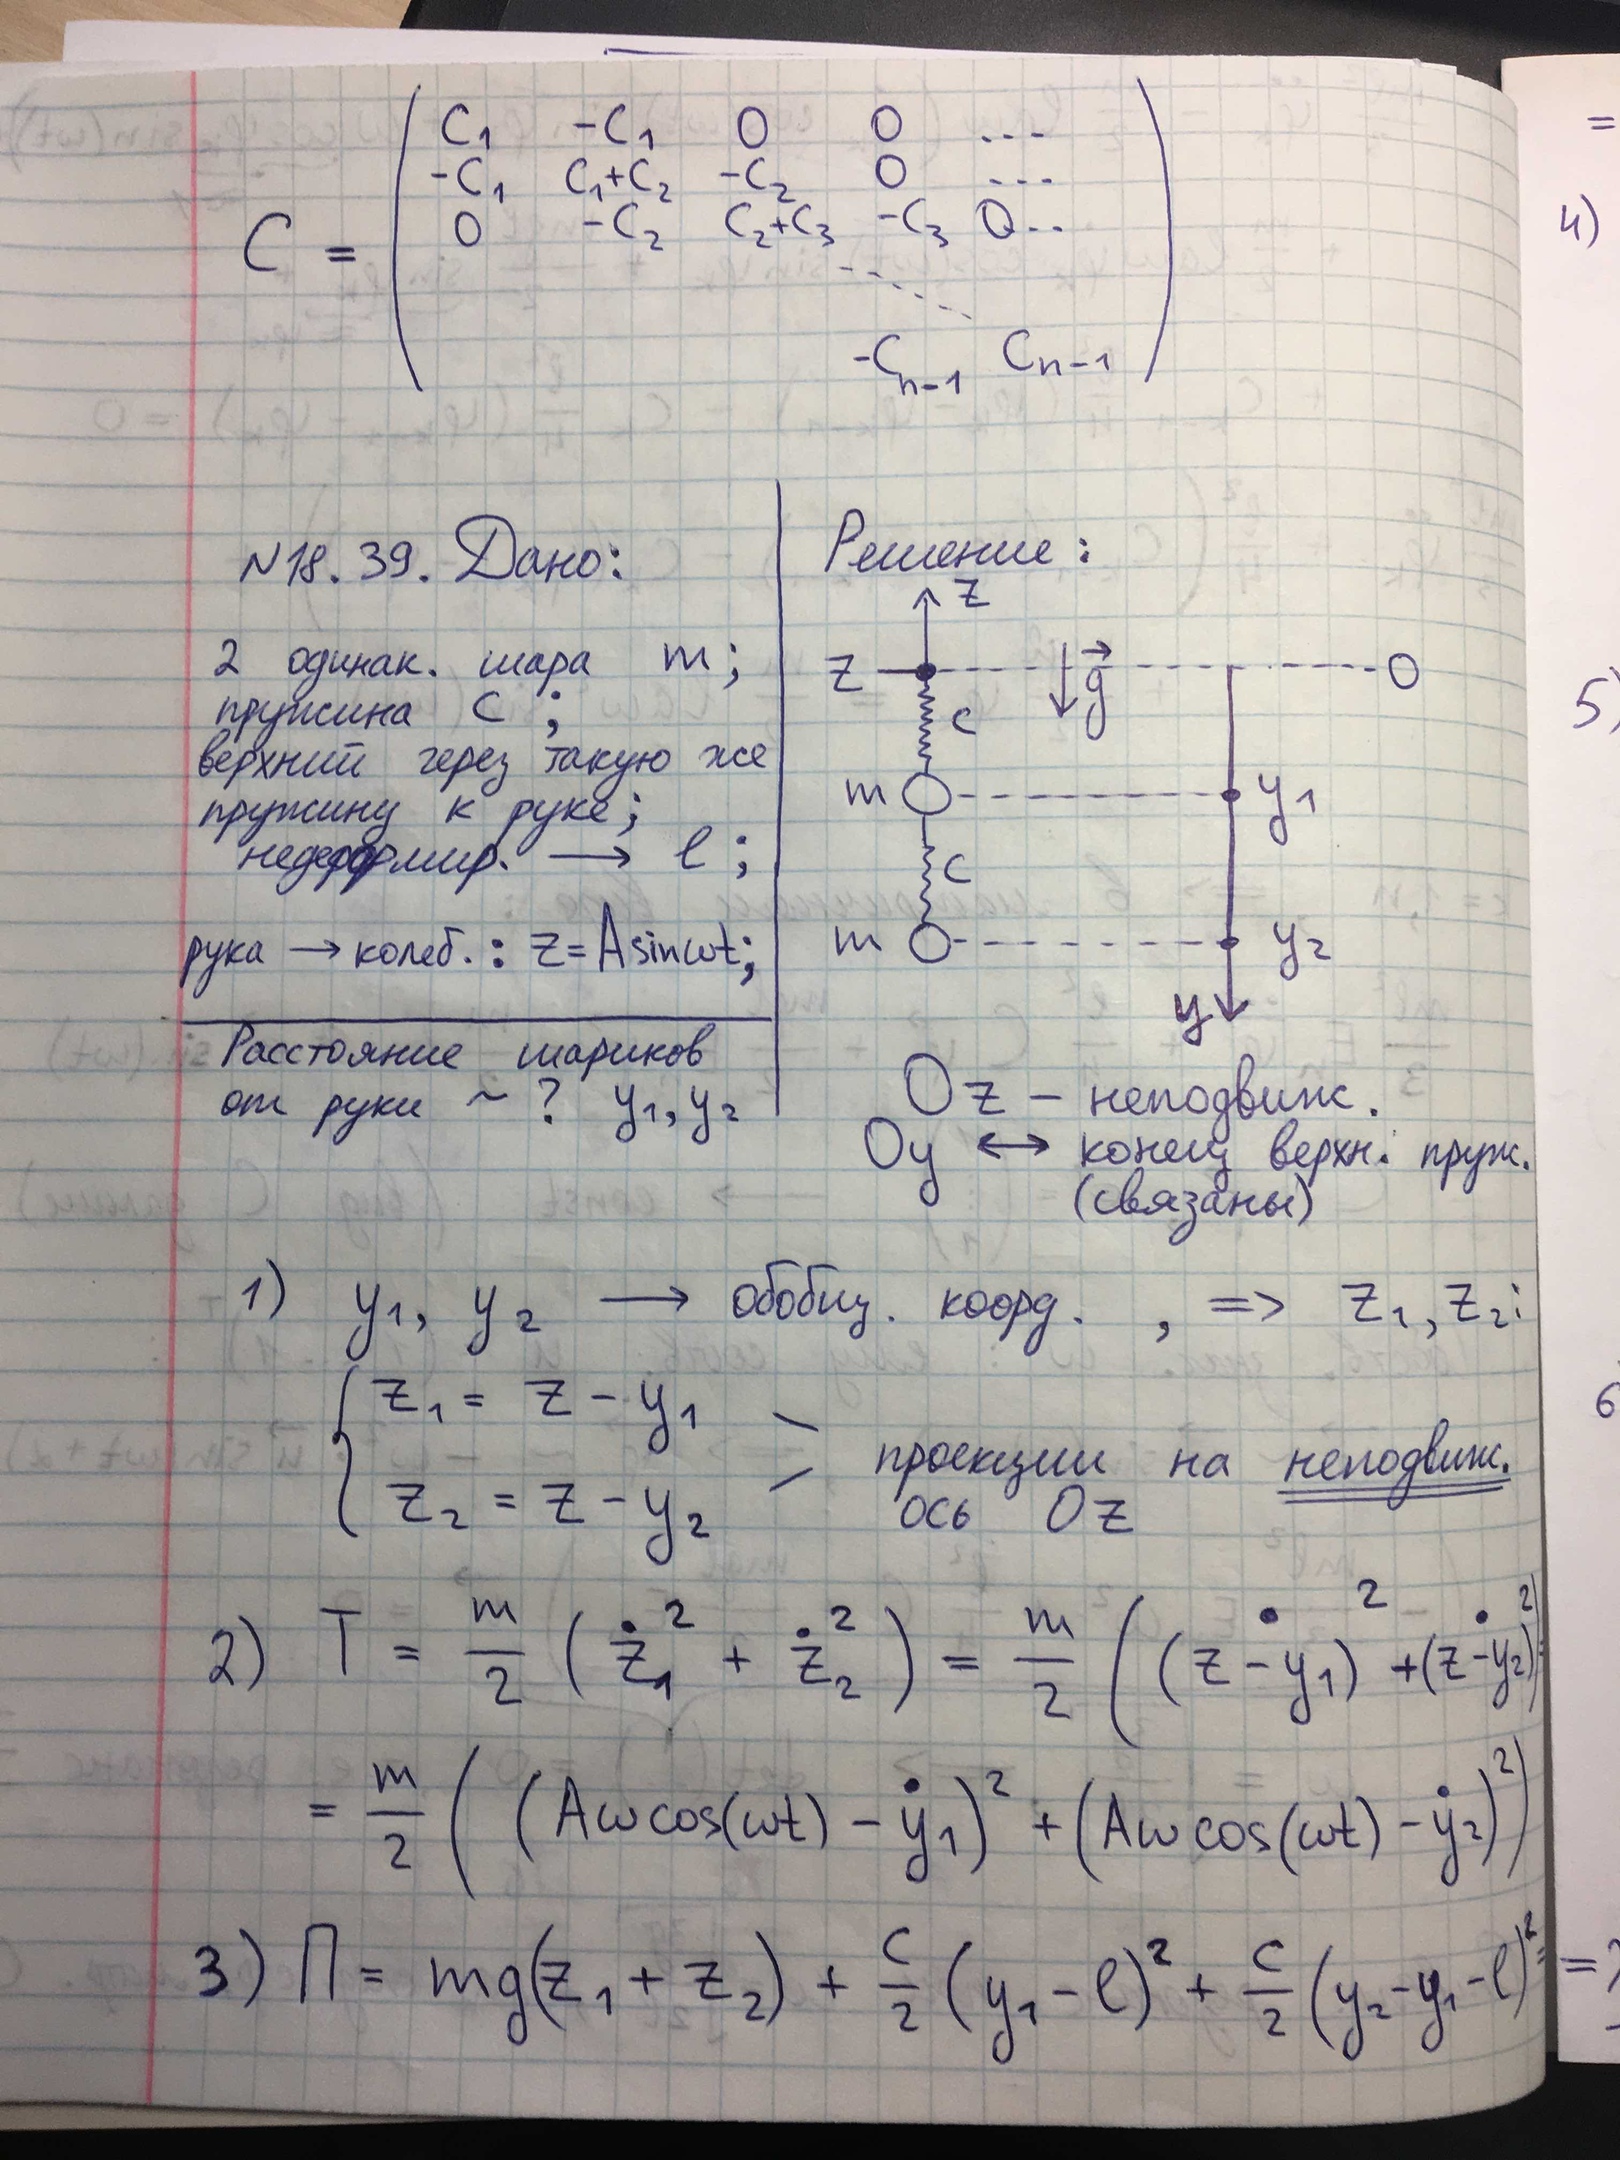 C = ( C₁ -C₁ 0 0 ...
-C₁ C₁+C₂ -C₂ 0 ...
0 -C₂ C₂+C₃ -C₃ 0...
-Cₙ₋₁ Cₙ₋₁ )
=
4)
N18.39. Дано:
2 одинак. шара m;
пружина c;
верхний через такую же
пружину к руке;
недеформир. → l;
рука → колеб.: z=Asinωt;
Расстояние шариков
от руки ~ ? y₁, y₂
Решение:
z
z 0
g⃗
c
m y₁
c
m y₂
y
Oz – неподвиж.
Oy ↔ конец верхн. пруж.
(связаны)
5)
1) y₁, y₂ → обобщ. коорд. , => z₁, z₂:
{ z₁ = z - y₁
z₂ = z - y₂
проекции на неподвиж.
ось Oz
6
2) T = m/2 (ż₁² + ż₂²) = m/2 ((z-̇y₁)² + (z-̇y₂)²) =
= m/2 ((Aωcos(ωt) - ẏ₁)² + (Aωcos(ωt) - ẏ₂)²)
3) П = mg(z₁ + z₂) + c/2 (y₁ - l)² + c/2 (y₂ - y₁ - l)² =
=